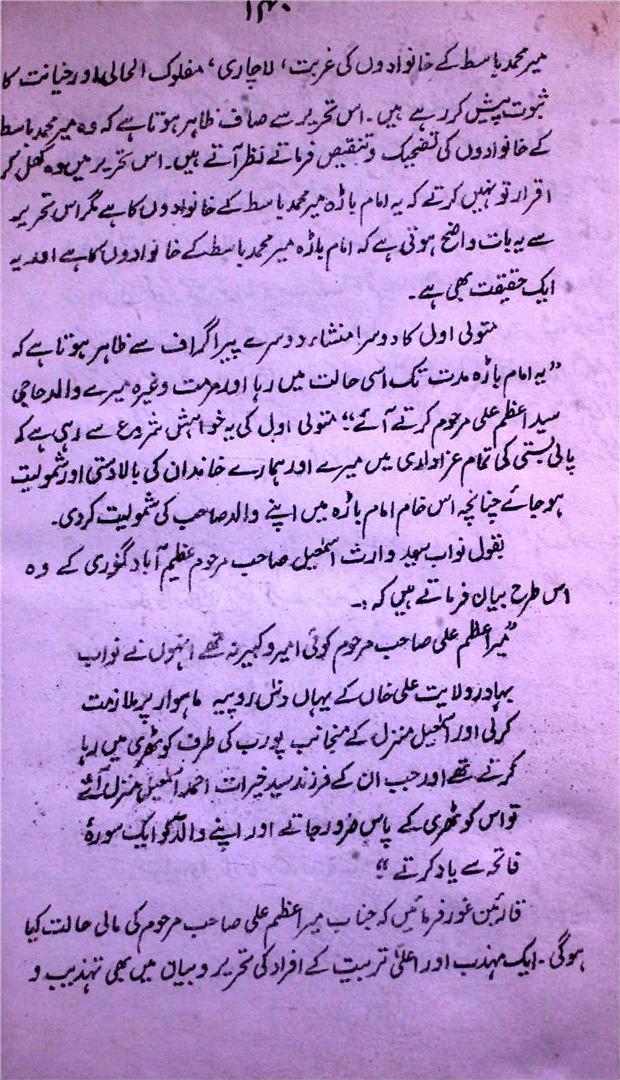 ۱۴۰
میر محمد باسط کے خانوادوں کی غربت، لاچاری، مفلوک الحالی اور خیانت کا
ثبوت پیش کر رہے ہیں۔ اس تحریر سے صاف ظاہر ہوتا ہے کہ وہ میر محمد باسط
کے خانوادوں کی تضحیک و تنقیص فرماتے نظر آتے ہیں۔ اس تحریر میں وہ کھل کر
اقرار تو نہیں کرتے کہ یہ امام باڑہ میر محمد باسط کے خانوادوں کا ہے مگر اس تحریر
سے یہ بات واضح ہوتی ہے کہ امام باڑہ میر محمد باسط کے خانوادوں کا ہے اور یہ
ایک حقیقت بھی ہے۔
متولی اول کا دوسرا منشاء دوسرے پیراگراف سے ظاہر ہوتا ہے کہ
"یہ امام باڑہ مدت تک اسی حالت میں رہا اور مرمت وغیرہ میرے والد حاجی
سید اعظم علی مرحوم کرتے آئے" متولی اول کی یہ خواہش شروع سے رہی ہے کہ
پالی بستی کی تمام عزاداری میں میرے اور ہمارے خاندان کی بالادستی اور شمولیت
ہو جائے چنانچہ اس خام امام باڑہ میں اپنے والد صاحب کی شمولیت کر دی۔
بقول نواب سید وارث اسمٰعیل صاحب مرحوم عظیم آباد گذری کے وہ
اس طرح بیان فرماتے ہیں کہ :۔
"میر اعظم علی صاحب مرحوم کوئی امیر و کبیر نہ تھے انہوں نے نواب
بہادر ولایت علی خاں کے یہاں دس روپیہ ماہوار پر ملازمت
کر لی اور اسمٰعیل منزل کے منجانب پورب کی طرف کوٹھری میں رہا
کرتے تھے اور جب ان کے فرزند سید خیرات احمد اسمٰعیل منزل آئے
تو اس کوٹھری کے پاس ضرور جاتے اور اپنے والد کو ایک سورۂ
فاتحہ سے یاد کرتے"
قارئین غور فرمائیں کہ جناب میر اعظم علی صاحب مرحوم کی مالی حالت کیا
ہوگی۔ ایک مہذب اور اعلیٰ تربیت کے افراد کی تحریر و بیان میں بھی تہذیب و